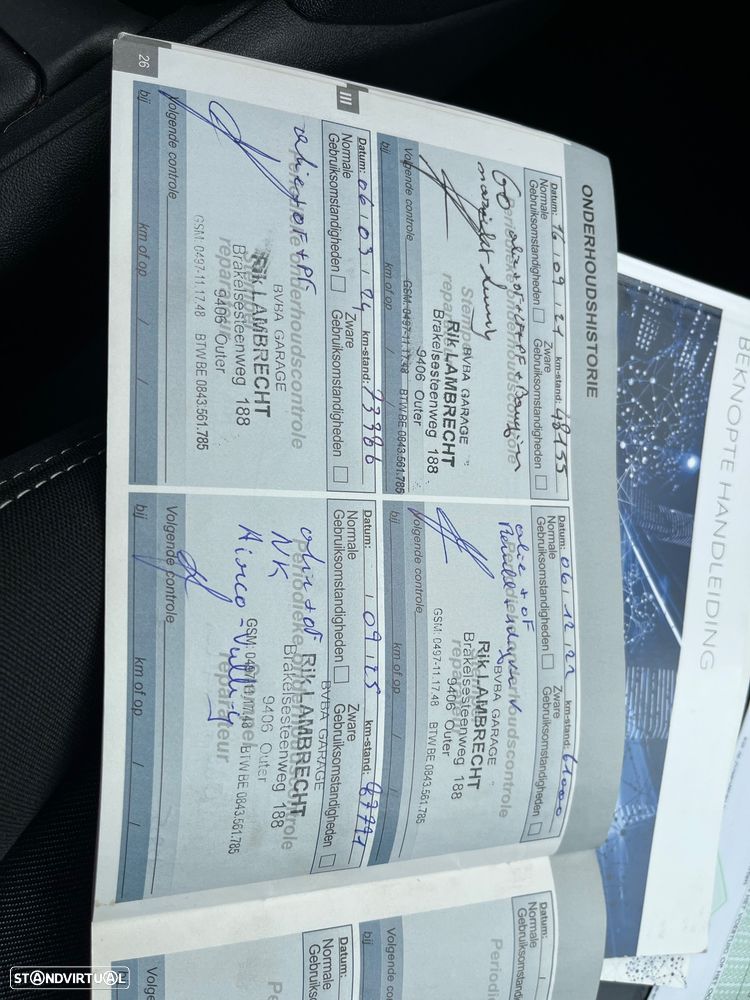 ONDERHOUDSHISTORIE
Datum: 16/09/21 km-stand: 48155
Normale Gebruiksomstandigheden
Zware Gebruiksomstandigheden
BVBA GARAGE
Rik LAMBRECHT
Brakelsesteenweg 188
9406 Outer
GSM: 0497-11.17.48 BTW BE 0843.561.785
Volgende controle
bij km of op / /
Datum: 06/12/22 km-stand: 61000
Normale Gebruiksomstandigheden
Zware Gebruiksomstandigheden
Periodieke onderhoudscontrole
olie + OF
BVBA GARAGE
Rik LAMBRECHT
Brakelsesteenweg 188
9406 Outer
GSM: 0497-11.17.48 BTW BE 0843.561.785
Volgende controle
bij km of op / /
III
Datum: 06/03/24 km-stand: 73986
Normale Gebruiksomstandigheden
Zware Gebruiksomstandigheden
Periodieke onderhoudscontrole
olie + OF + PF
BVBA GARAGE
Rik LAMBRECHT
Brakelsesteenweg 188
9406 Outer
GSM: 0497-11.17.48 BTW BE 0843.561.785
Volgende controle
bij km of op / /
Datum: / 09/25 km-stand: 87791
Normale Gebruiksomstandigheden
Zware Gebruiksomstandigheden
olie + OF
NK
Airco-Vulling
BVBA GARAGE
Rik LAMBRECHT
Brakelsesteenweg 188
9406 Outer
GSM: 0497-11.17.48 BTW BE 0843.561.785
Volgende controle
bij km of op / /
26
Datum:
Normale
Gebruiksomstandig
Periodi
Volgende controle
bij
Datum:
Normale
Gebruiksomstandig
Volg
bij
BEKNOPTE HANDLEIDING
STANDVIRTUAL